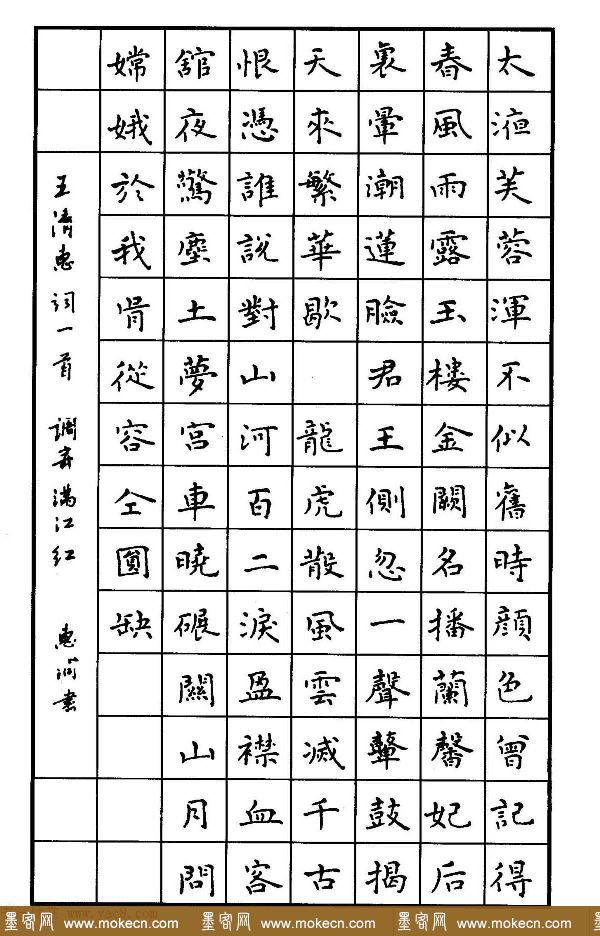 太液芙蓉渾不似舊時顔色曾記得
春風雨露玉樓金闕名播蘭馨妃后
裏暈潮蓮臉君王側忽一聲鼙鼓揭
天來繁華歇 龍虎散風雲滅千古
恨憑誰說對山河百二淚盈襟血客
舘夜驚塵土夢宮車曉碾關山月問
嫦娥於我肯從容仝圓缺
王清惠词一首 調寄滿江红 惠書
墨客网 www.mokecn.com 墨客网 www.mokecn.com 墨客网 www.mokecn.com